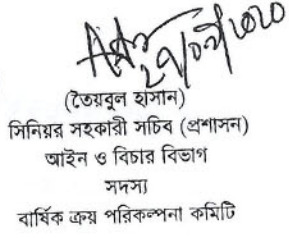 ২৭/০৭/২০২০
(তৈয়বুল হাসান)
সিনিয়র সহকারী সচিব (প্রশাসন)
আইন ও বিচার বিভাগ
সদস্য
বার্ষিক ক্রয় পরিকল্পনা কমিটি